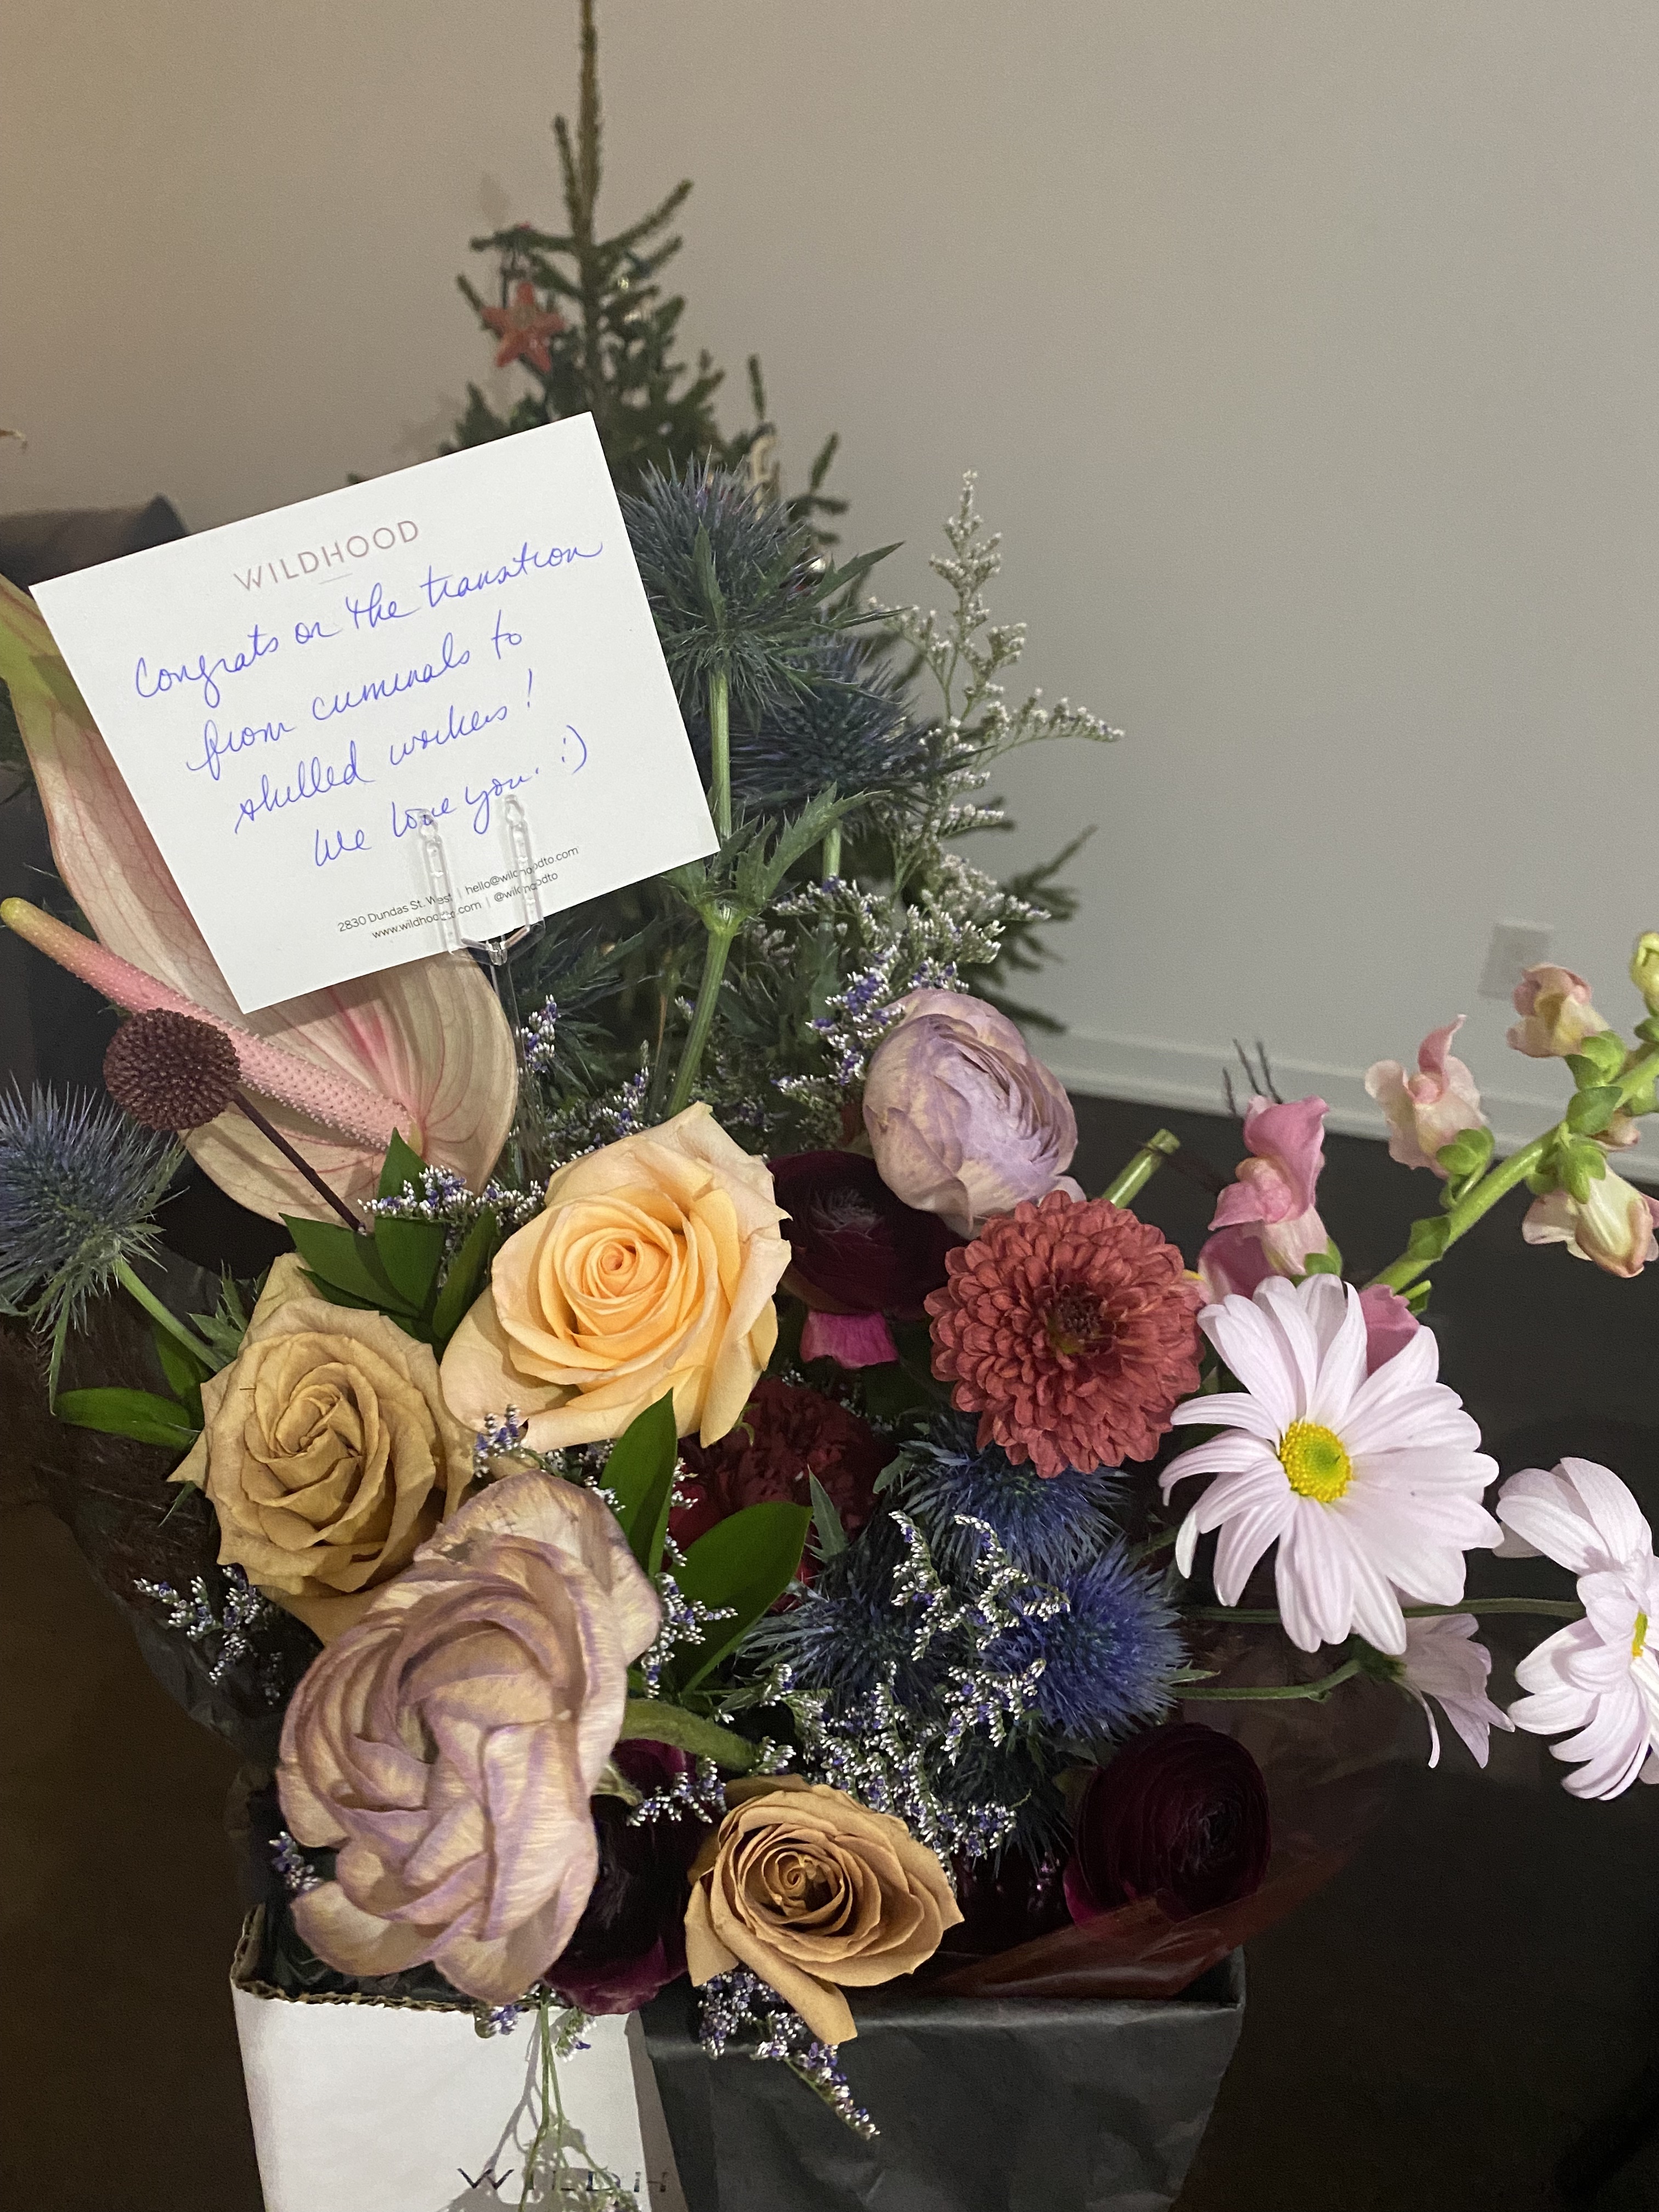 WILDHOOD
Congrats on the transition
from criminals to
skilled workers!
We love you. :)
2830 Dundas St. West | hello@wildhoodto.com
www.wildhoodto.com | @wildhoodto
WILDH